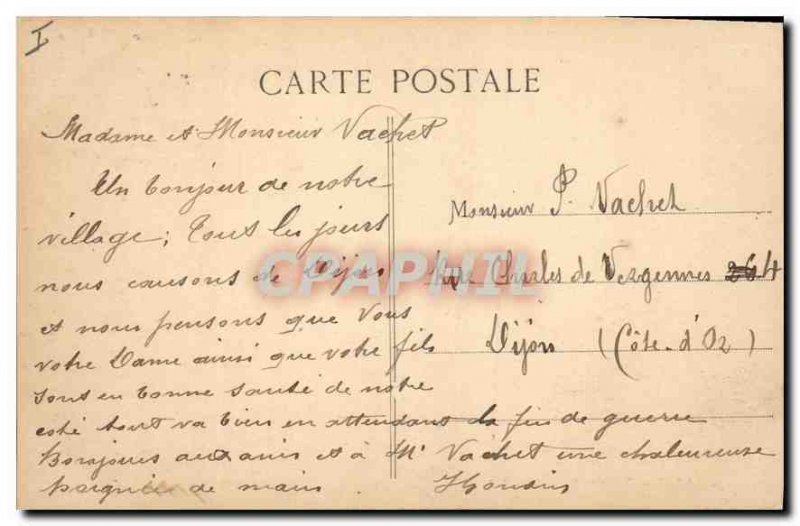 I
CARTE POSTALE
Madame et Monsieur Vachet
Un bonjour de notre
village; Tous les jours
nous causons de Dijon
et nous pensons que Vous
votre Dame ainsi que votre fils
sont en bonne santé de notre
coté tout va bien en attendant la fin de guerre
aux amis et à Mr Vachet une chaleureuse
poignée de main
Monsieur P. Vachet
Rue Charles de Vergennes 4
Dijon (Côte-d'Or)
CPAPHIL